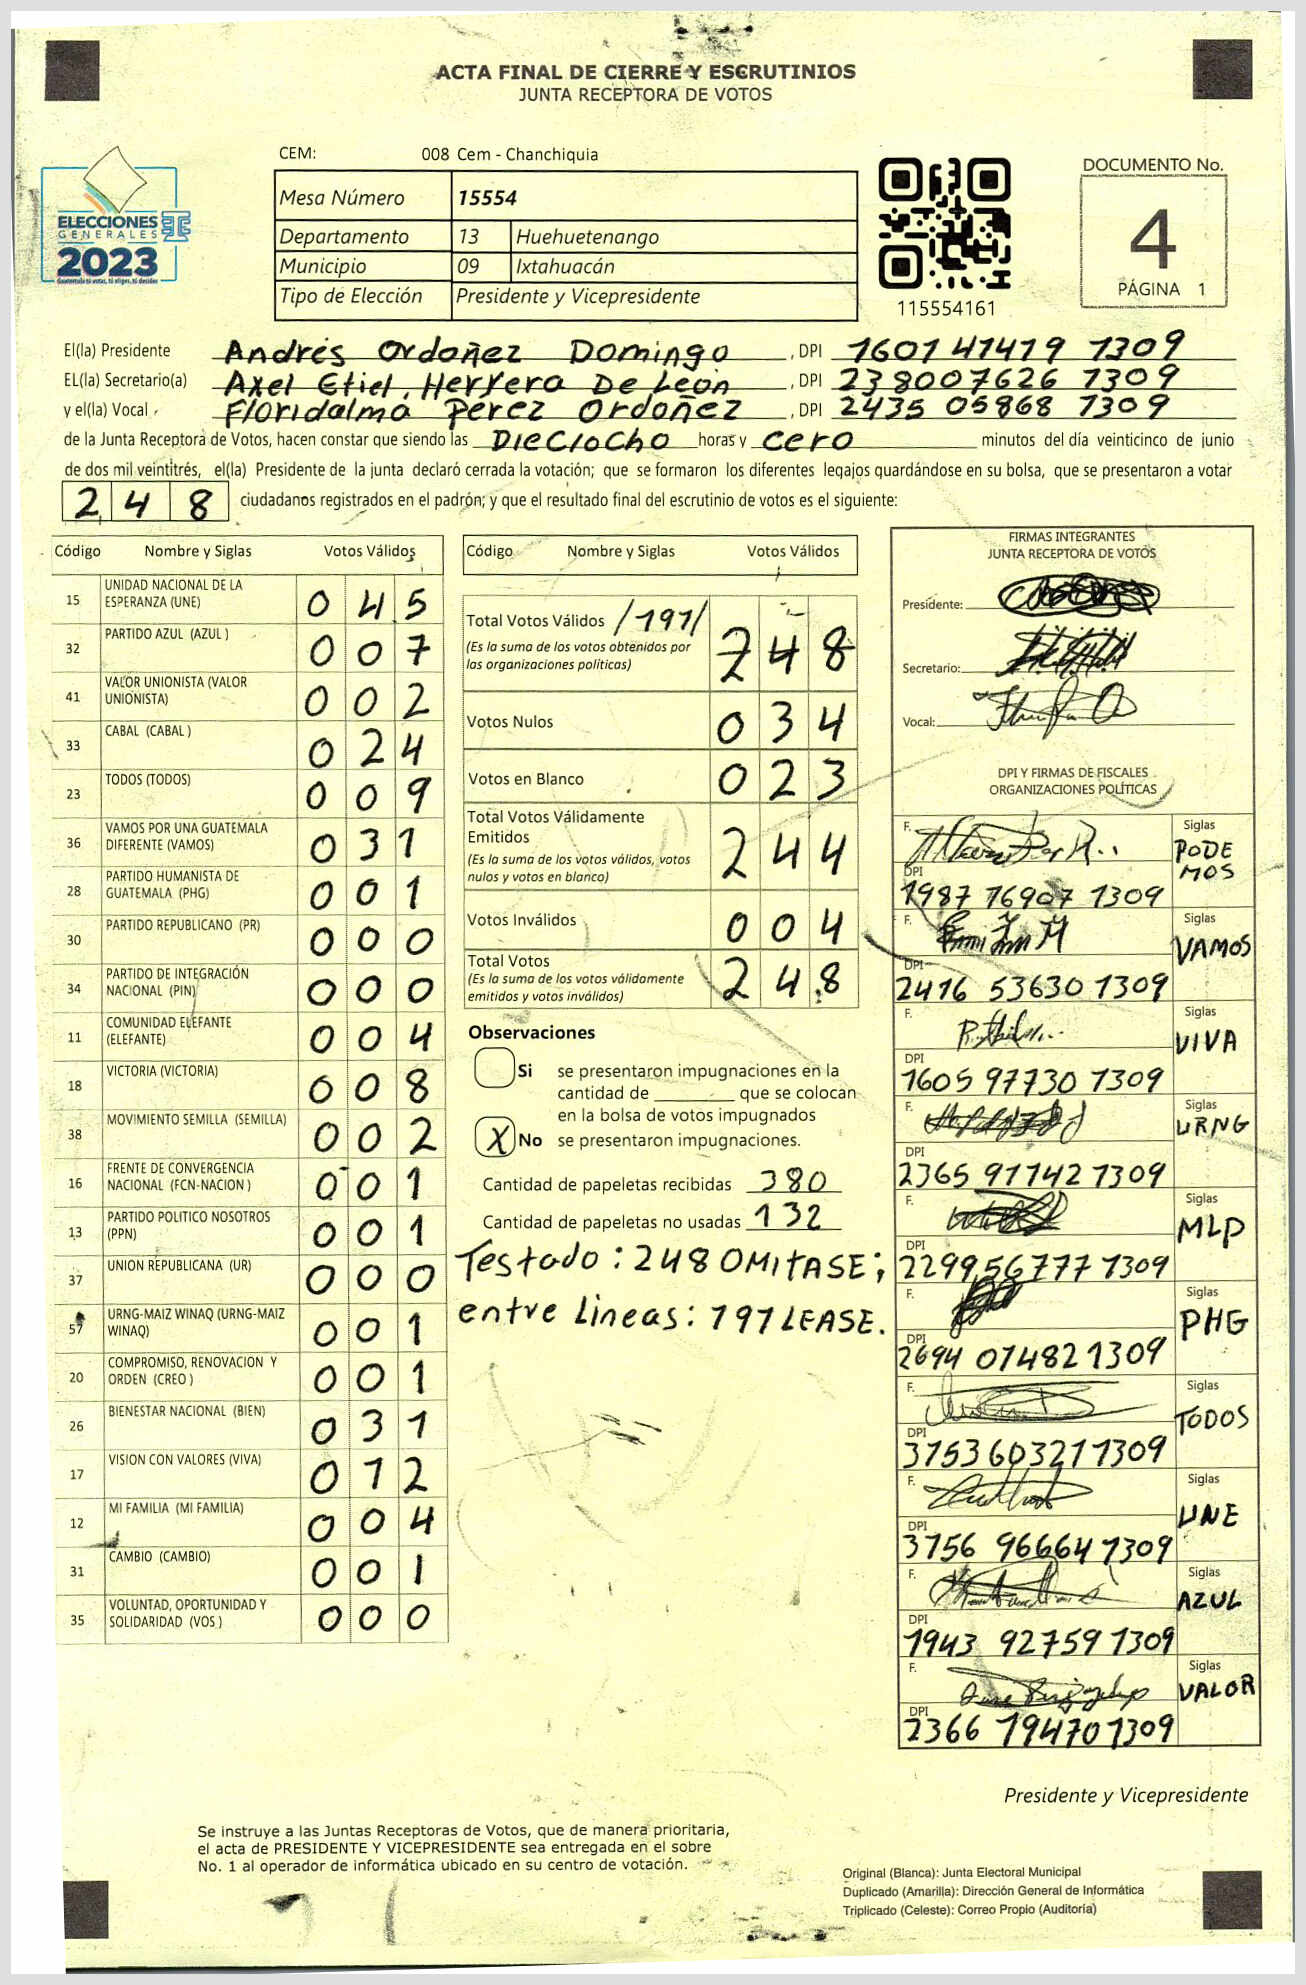 ACTA FINAL DE CIERRE Y ESCRUTINIOS
JUNTA RECEPTORA DE VOTOS
CEM: 008 Cem - Chanchiquia
ELECCIONES
GENERALES
2023
Guatemala tú votas, tú eliges, tú decides
Mesa Número 15554
Departamento 13 Huehuetenango
Municipio 09 Ixtahuacán
Tipo de Elección Presidente y Vicepresidente
115554161
DOCUMENTO No.
4
PÁGINA 1
El(la) Presidente Andrés Ordoñez Domingo, DPI 1601 41419 1309
EL(la) Secretario(a) Axel Etiel Herrera De León, DPI 238007626 1309
y el(la) Vocal Floridalma Perez Ordoñez, DPI 2435 05868 1309
de la Junta Receptora de Votos, hacen constar que siendo las DIECIOCHO horas y CERO minutos del día veinticinco de junio
de dos mil veintitrés, el(la) Presidente de la junta declaró cerrada la votación; que se formaron los diferentes legajos guardándose en su bolsa, que se presentaron a votar
248 ciudadanos registrados en el padrón; y que el resultado final del escrutinio de votos es el siguiente:
Código Nombre y Siglas Votos Válidos
15 UNIDAD NACIONAL DE LA ESPERANZA (UNE) 045
32 PARTIDO AZUL (AZUL ) 007
41 VALOR UNIONISTA (VALOR UNIONISTA) 002
33 CABAL (CABAL ) 024
23 TODOS (TODOS) 009
36 VAMOS POR UNA GUATEMALA DIFERENTE (VAMOS) 031
28 PARTIDO HUMANISTA DE GUATEMALA (PHG) 001
30 PARTIDO REPUBLICANO (PR) 000
34 PARTIDO DE INTEGRACIÓN NACIONAL (PIN) 000
11 COMUNIDAD ELEFANTE (ELEFANTE) 004
18 VICTORIA (VICTORIA) 008
38 MOVIMIENTO SEMILLA (SEMILLA) 002
16 FRENTE DE CONVERGENCIA NACIONAL (FCN-NACION ) 001
13 PARTIDO POLITICO NOSOTROS (PPN) 001
37 UNION REPUBLICANA (UR) 000
57 URNG-MAIZ WINAQ (URNG-MAIZ WINAQ) 001
20 COMPROMISO, RENOVACION Y ORDEN (CREO ) 001
26 BIENESTAR NACIONAL (BIEN) 031
17 VISION CON VALORES (VIVA) 012
12 MI FAMILIA (MI FAMILIA) 004
31 CAMBIO (CAMBIO) 001
35 VOLUNTAD, OPORTUNIDAD Y SOLIDARIDAD (VOS ) 000
Código Nombre y Siglas Votos Válidos
Total Votos Válidos /191/ 248
(Es la suma de los votos obtenidos por
las organizaciones políticas)
Votos Nulos 034
Votos en Blanco 023
Total Votos Válidamente
Emitidos 244
(Es la suma de los votos válidos, votos
nulos y votos en blanco)
Votos Inválidos 004
Total Votos 248
(Es la suma de los votos válidamente
emitidos y votos inválidos)
Observaciones
Si se presentaron impugnaciones en la
cantidad de ________ que se colocan
en la bolsa de votos impugnados
X No se presentaron impugnaciones.
Cantidad de papeletas recibidas 380
Cantidad de papeletas no usadas 132
Testado: 248 OMITASE;
entre Lineas: 191 LEASE.
FIRMAS INTEGRANTES
JUNTA RECEPTORA DE VOTOS
Presidente:
Secretario:
Vocal:
DPI Y FIRMAS DE FISCALES
ORGANIZACIONES POLÍTICAS
F. Siglas PODEMOS
DPI 1987 16907 1309
F. Siglas VAMOS
DPI 2416 53630 1309
F. Siglas VIVA
DPI 1605 97730 1309
F. Siglas URNG
DPI 2365 91142 1309
F. Siglas MLP
DPI 2299 56777 1309
F. Siglas PHG
DPI 2694 07482 1309
F. Siglas TODOS
DPI 3153 60321 1309
F. Siglas UNE
DPI 3756 96664 1309
F. Siglas AZUL
DPI 1943 92759 1309
F. Siglas VALOR
DPI 2366 19470 1309
Presidente y Vicepresidente
Se instruye a las Juntas Receptoras de Votos, que de manera prioritaria,
el acta de PRESIDENTE Y VICEPRESIDENTE sea entregada en el sobre
No. 1 al operador de informática ubicado en su centro de votación.
Original (Blanca): Junta Electoral Municipal
Duplicado (Amarilla): Dirección General de Informática
Triplicado (Celeste): Correo Propio (Auditoría)